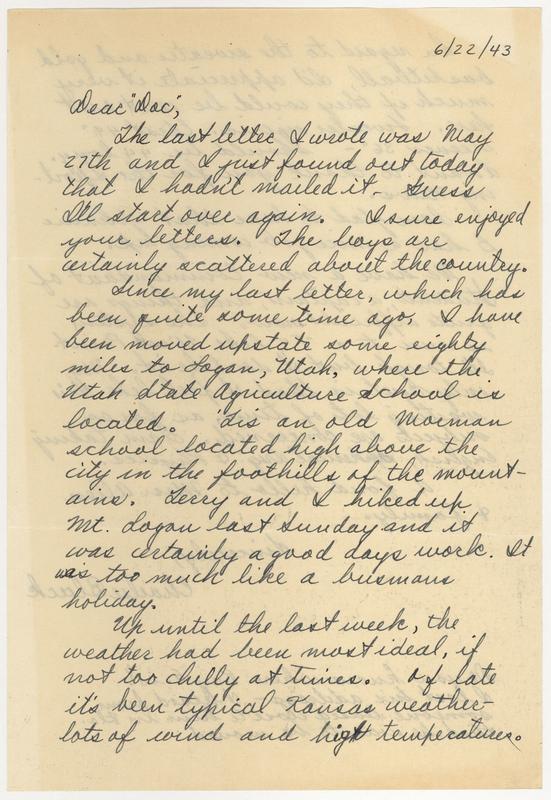 6/22/43
Dear "Doc",
The last letter I wrote was May
27th and I just found out today
that I hadn't mailed it - Guess
I'll start over again. I sure enjoyed
your letters. The boys are
certainly scattered about the country.
Since my last letter, which has
been quite some time ago, I have
been moved upstate some eighty
miles to Logan, Utah, where the
Utah State Agriculture School is
located. 'Tis an old Morman
school located high above the
city in the foothills of the mount-
ains. Terry and I hiked up
Mt. Logan last Sunday and it
was certainly a good days work. It
was too much like a busmans
holiday.
Up until the last week, the
weather had been most ideal, if
not too chilly at times. Of late
it's been typical Kansas weather-
lots of wind and high temperatures.